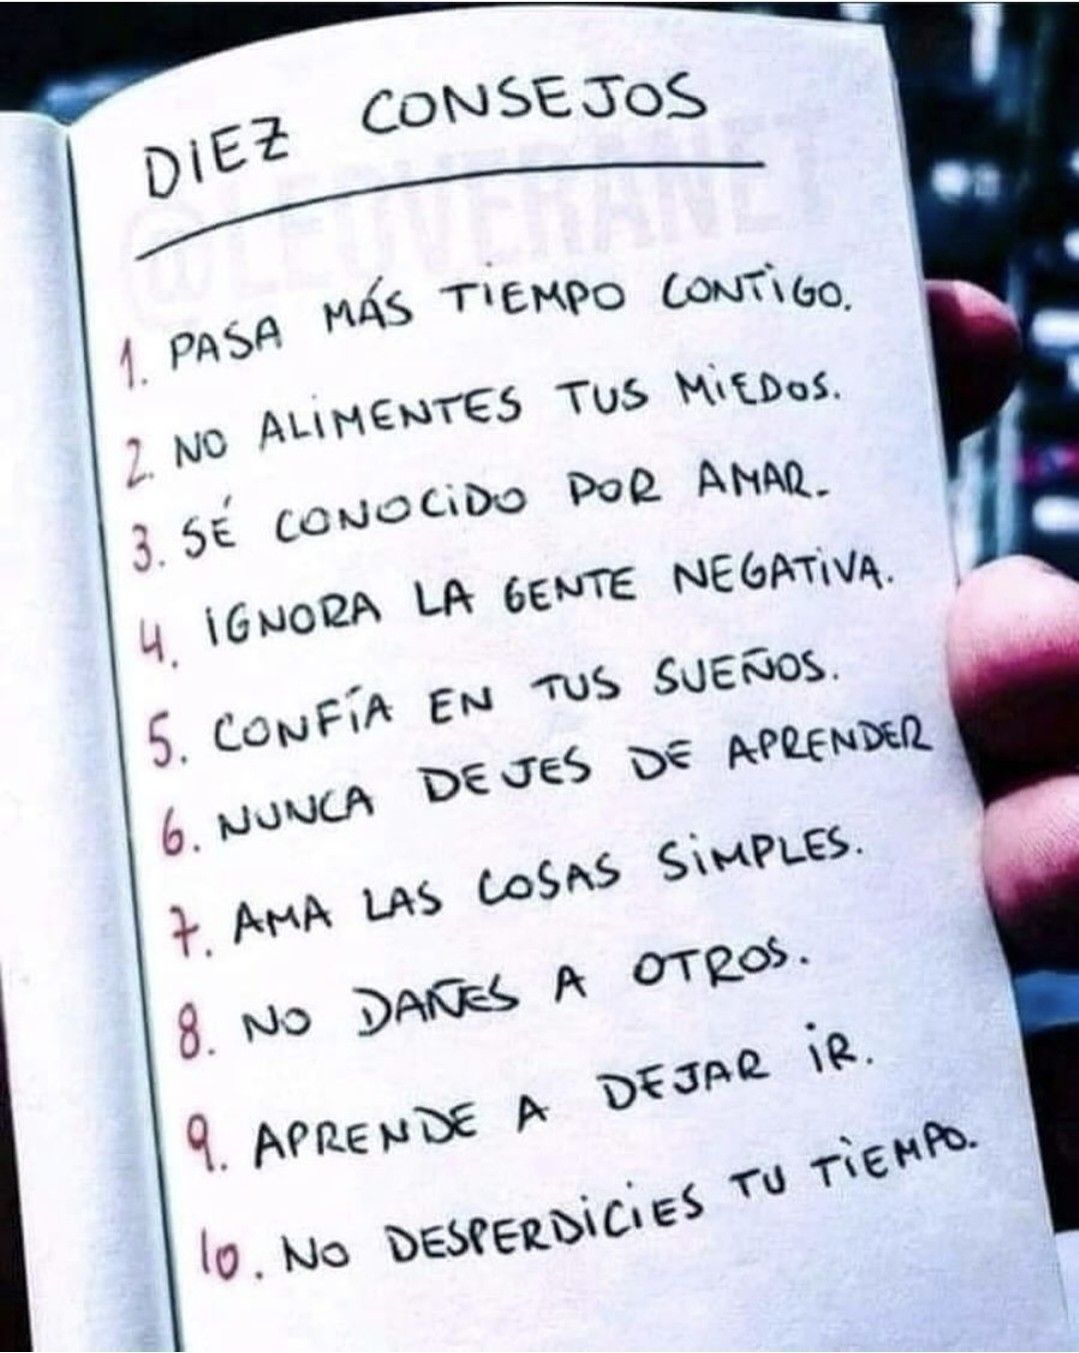 DIEZ CONSEJOS
@LEOVERANET
1. PASA MÁS TIEMPO CONTIGO.
2. NO ALIMENTES TUS MIEDOS.
3. SÉ CONOCIDO POR AMAR.
4. IGNORA LA GENTE NEGATIVA.
5. CONFÍA EN TUS SUEÑOS.
6. NUNCA DEJES DE APRENDER
7. AMA LAS COSAS SIMPLES.
8. NO DAÑES A OTROS.
9. APRENDE A DEJAR IR.
10. NO DESPERDICIES TU TIEMPO.